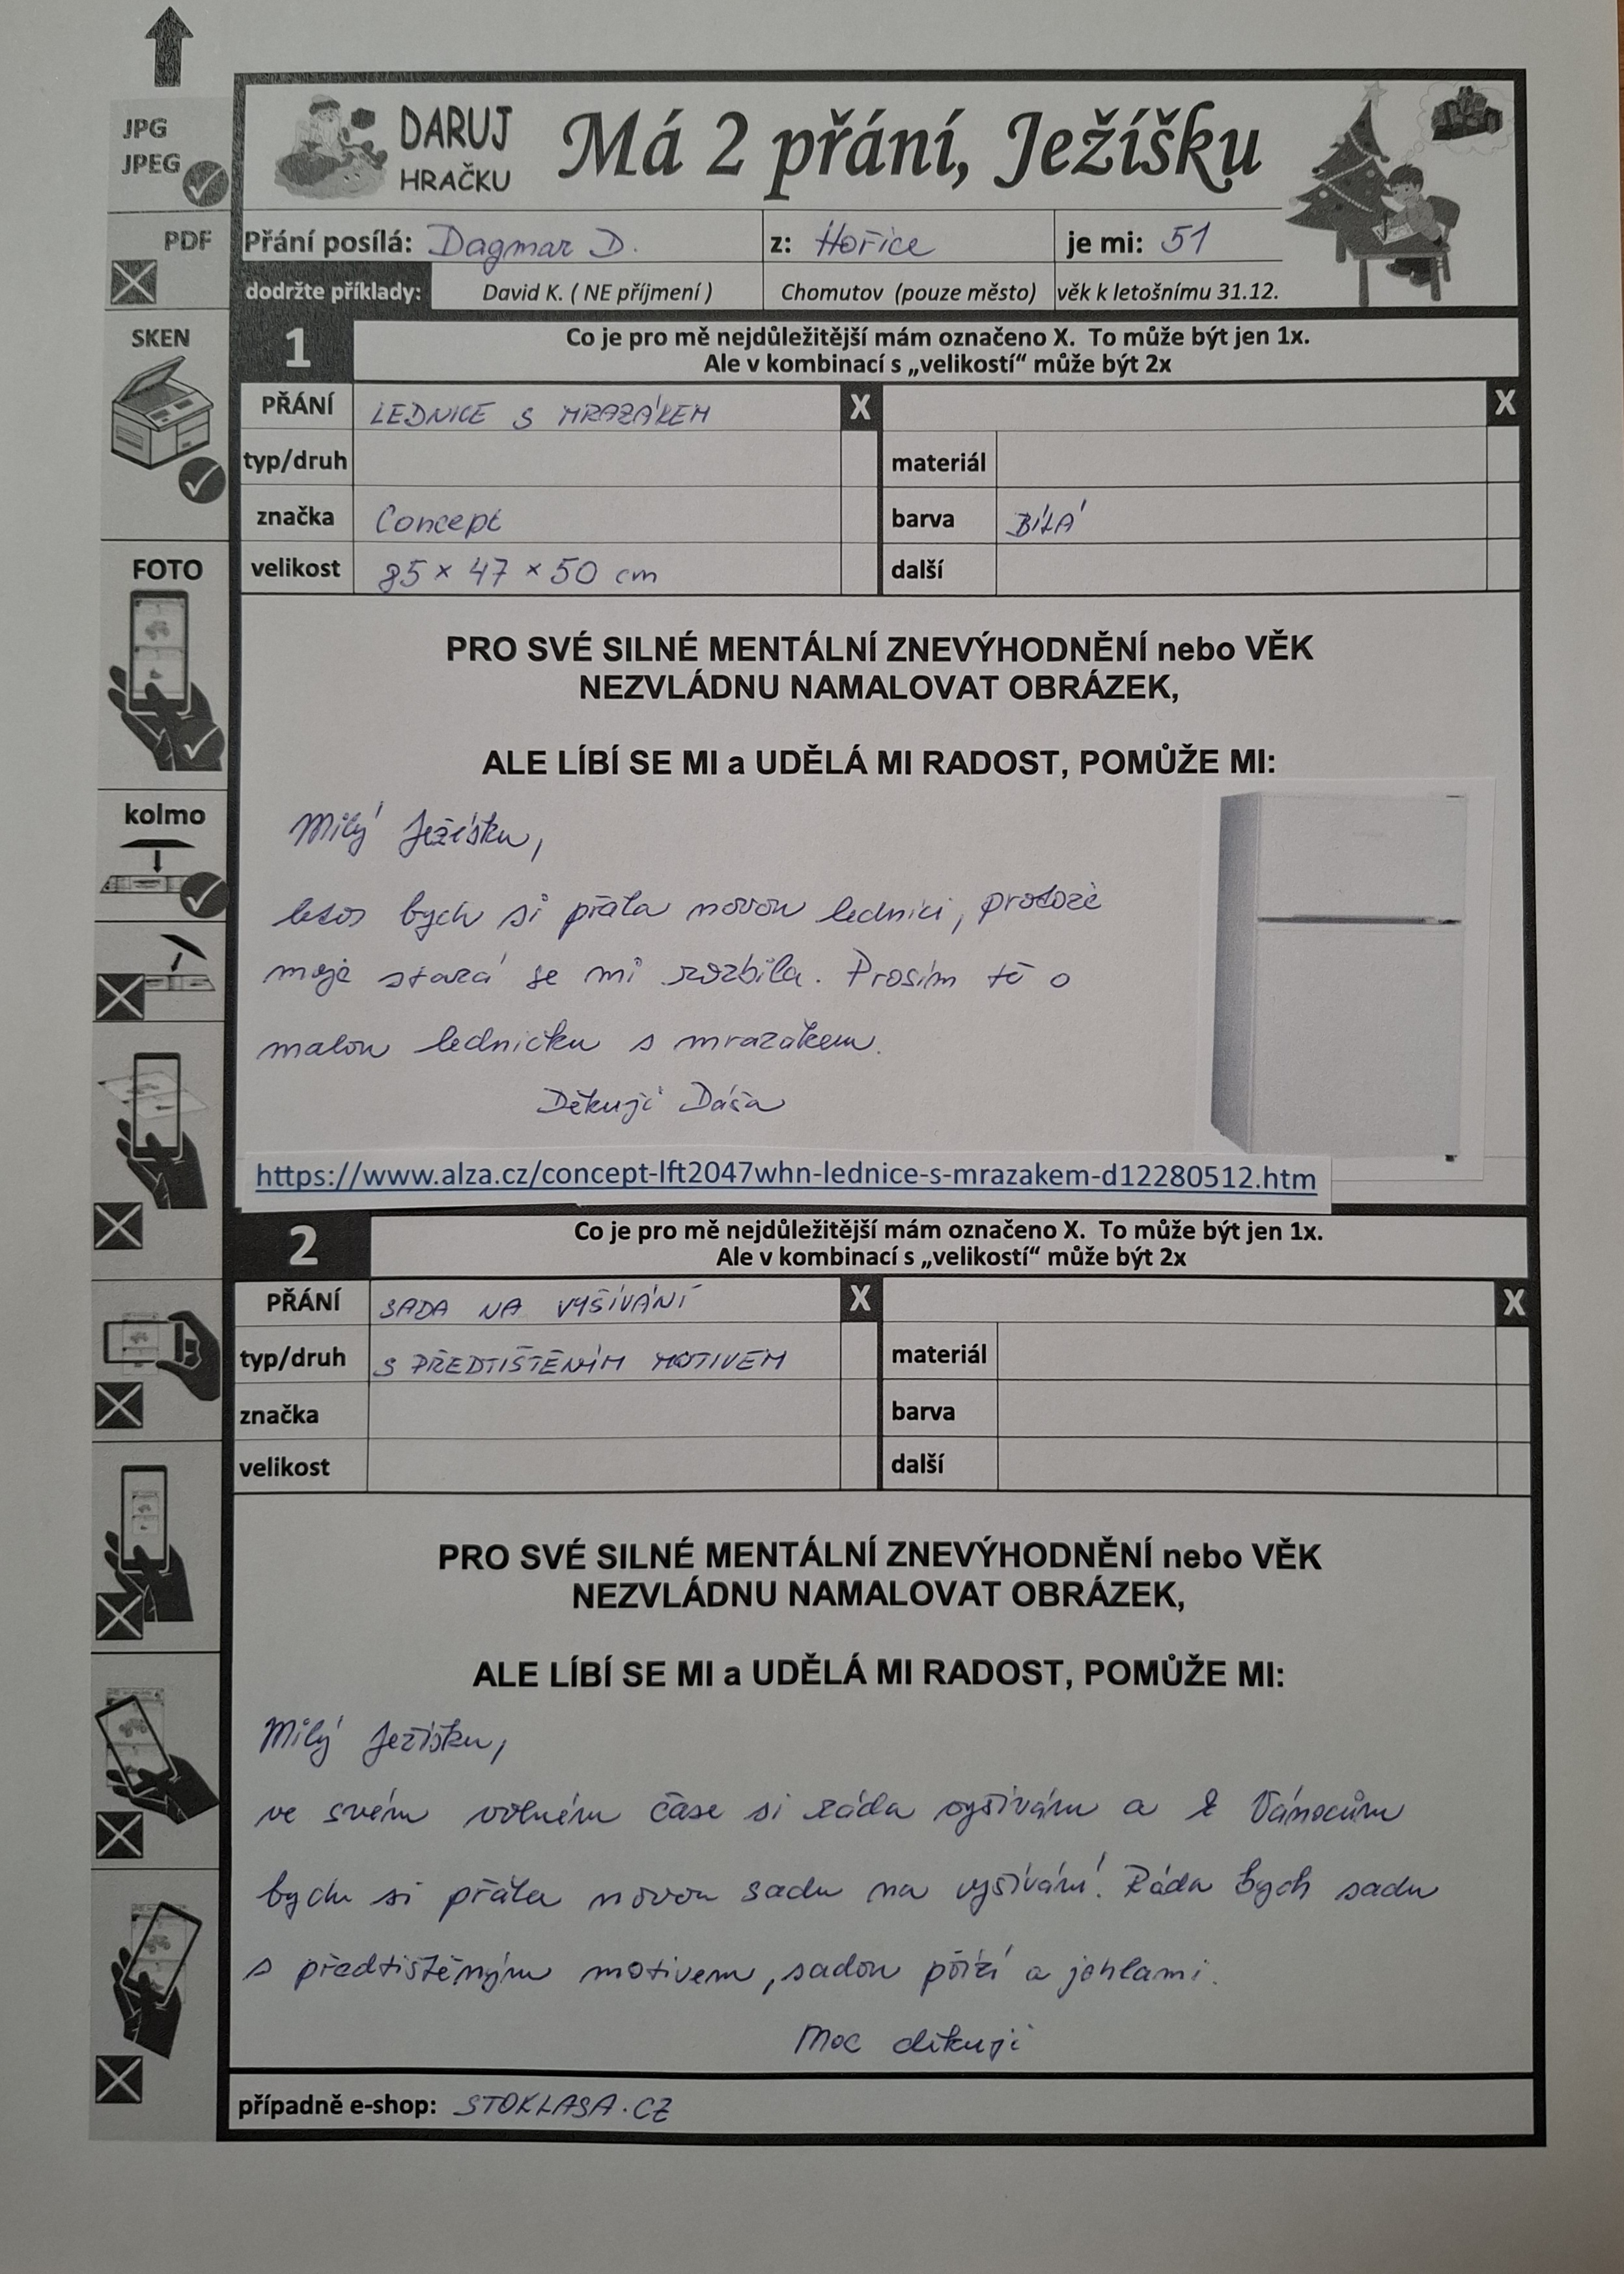 JPG
JPEG
PDF
SKEN
FOTO
kolmo
DARUJ
HRAČKU
Má 2 přání, Ježíšku
Přání posílá: Dagmar D. z: Hořice je mi: 51
dodržte příklady: David K. ( NE příjmení ) Chomutov (pouze město) věk k letošnímu 31.12.
1 Co je pro mě nejdůležitější mám označeno X. To může být jen 1x.
Ale v kombinací s „velikostí“ může být 2x
PŘÁNÍ LEDNICE S MRAZÁKEM X X
typ/druh materiál
značka Concept barva BÍLÁ
velikost 85 x 47 x 50 cm další
PRO SVÉ SILNÉ MENTÁLNÍ ZNEVÝHODNĚNÍ nebo VĚK
NEZVLÁDNU NAMALOVAT OBRÁZEK,
ALE LÍBÍ SE MI a UDĚLÁ MI RADOST, POMŮŽE MI:
Milý Ježíšku,
letos bych si přála novou lednici, protože
moje stará se mi rozbila. Prosím tě o
malou ledničku s mrazákem.
Děkuji Dáša
https://www.alza.cz/concept-lft2047whn-lednice-s-mrazakem-d12280512.htm
2 Co je pro mě nejdůležitější mám označeno X. To může být jen 1x.
Ale v kombinací s „velikostí“ může být 2x
PŘÁNÍ SADA NA VYŠÍVÁNÍ X X
typ/druh S PŘEDTIŠTĚNÍM MOTIVEM materiál
značka barva
velikost další
PRO SVÉ SILNÉ MENTÁLNÍ ZNEVÝHODNĚNÍ nebo VĚK
NEZVLÁDNU NAMALOVAT OBRÁZEK,
ALE LÍBÍ SE MI a UDĚLÁ MI RADOST, POMŮŽE MI:
Milý Ježíšku,
ve svém volném čase si ráda vyšívám a k Vánocům
bych si přála novou sadu na vyšívání. Ráda bych sadu
s předtištěným motivem, sadou přízí a jehlami.
Moc děkuji
případně e-shop: STOKLASA.CZ